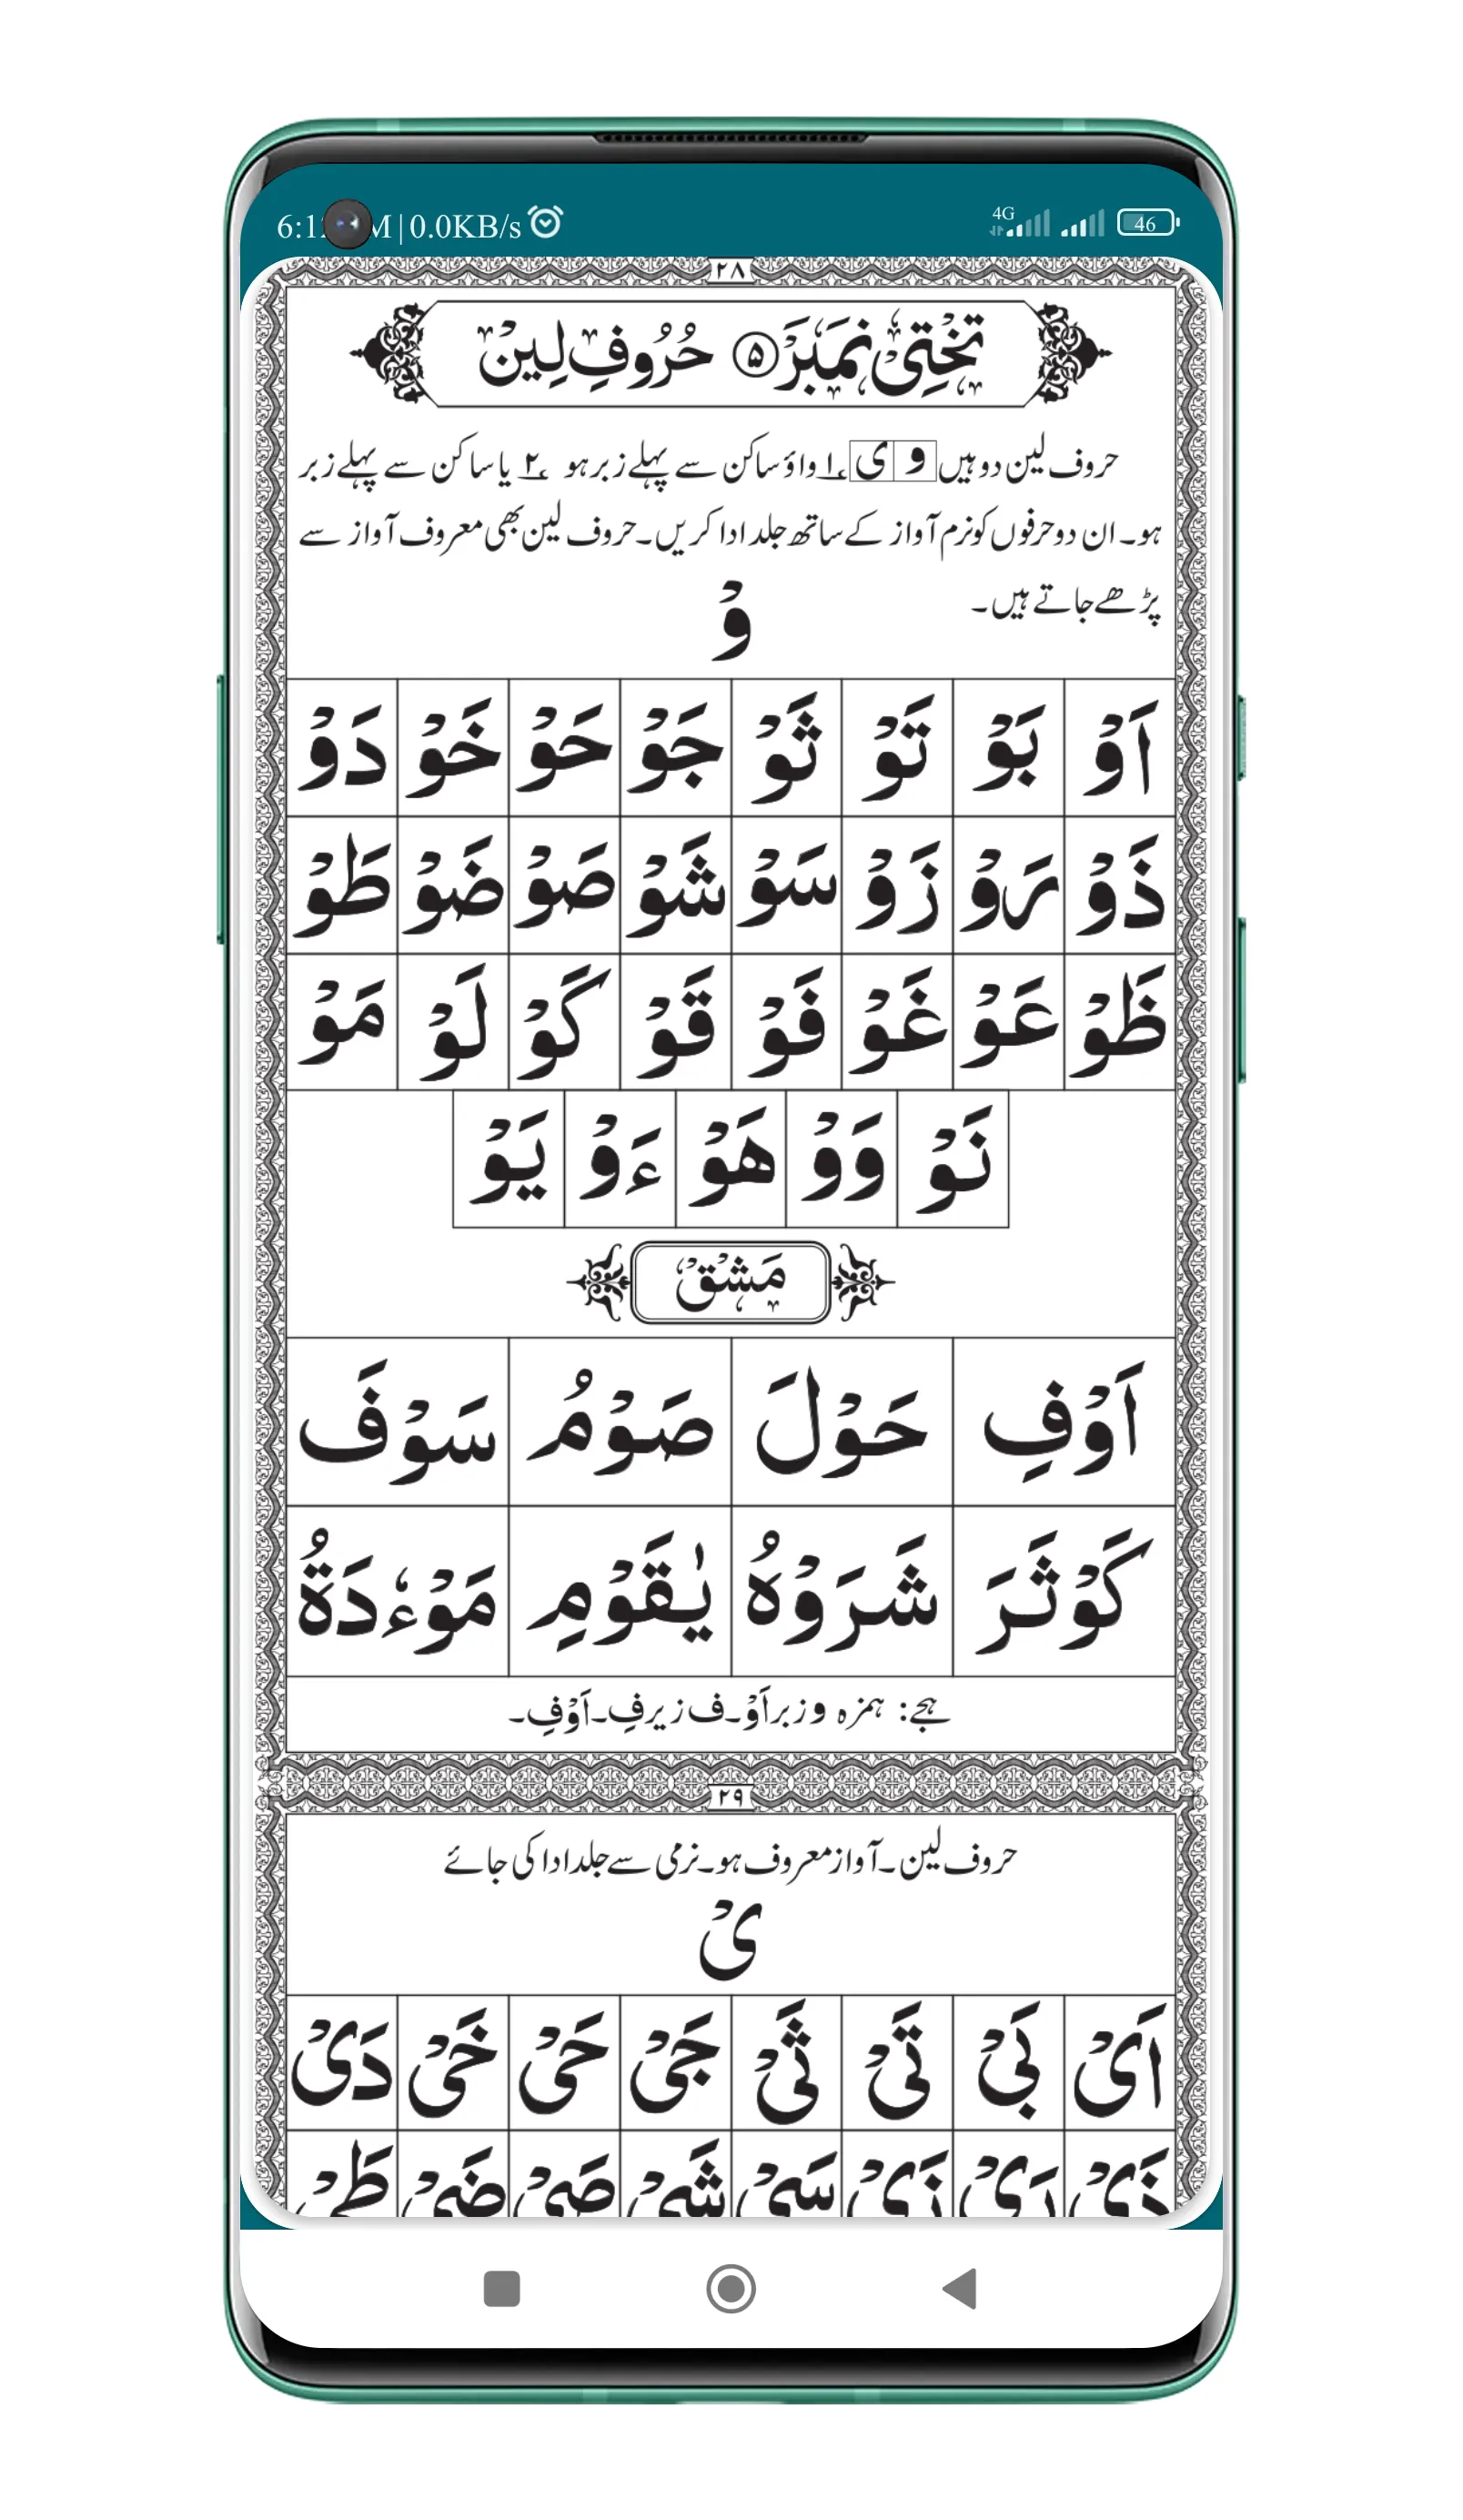 0.0KB/s
4G
46
۲۸
تَخْتِیْ نَمْبَرْ ۵ حُرُوفِ لِیْن
حروف لین دو ہیں و ی ۱؎ واؤ ساکن سے پہلے زبر ہو ۲؎ یا ساکن سے پہلے زبر
ہو۔ ان دو حرفوں کو نرم آواز کے ساتھ جلد ادا کریں۔ حروف لین بھی معروف آواز سے
پڑھے جاتے ہیں۔
وْ
اَوْ بَوْ تَوْ ثَوْ جَوْ حَوْ خَوْ دَوْ
ذَوْ رَوْ زَوْ سَوْ شَوْ صَوْ ضَوْ طَوْ
ظَوْ عَوْ غَوْ فَوْ قَوْ كَوْ لَوْ مَوْ
نَوْ وَوْ هَوْ ءَوْ يَوْ
مَشْقْ
اَوْفِ حَوْلَ صَوْمُ سَوْفَ
كَوْثَرَ شَرَوْهُ يٰقَوْمِ مَوْءٗدَةُ
ہجے: ہمزہ و زبر اَوْ۔ ف زیر فِ۔ اَوْفِ۔
۲۹
حروف لین۔ آواز معروف ہو۔ نرمی سے جلد ادا کی جائے
یْ
اَیْ بَیْ تَیْ ثَیْ جَیْ حَیْ خَیْ دَیْ
ذَیْ رَیْ زَیْ سَیْ شَیْ صَیْ ضَیْ طَیْ